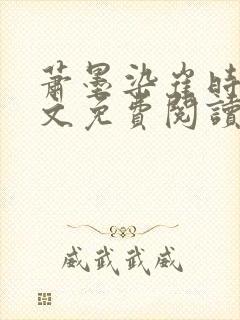 蕭墨染崔時
文免費閱讀
威武武威